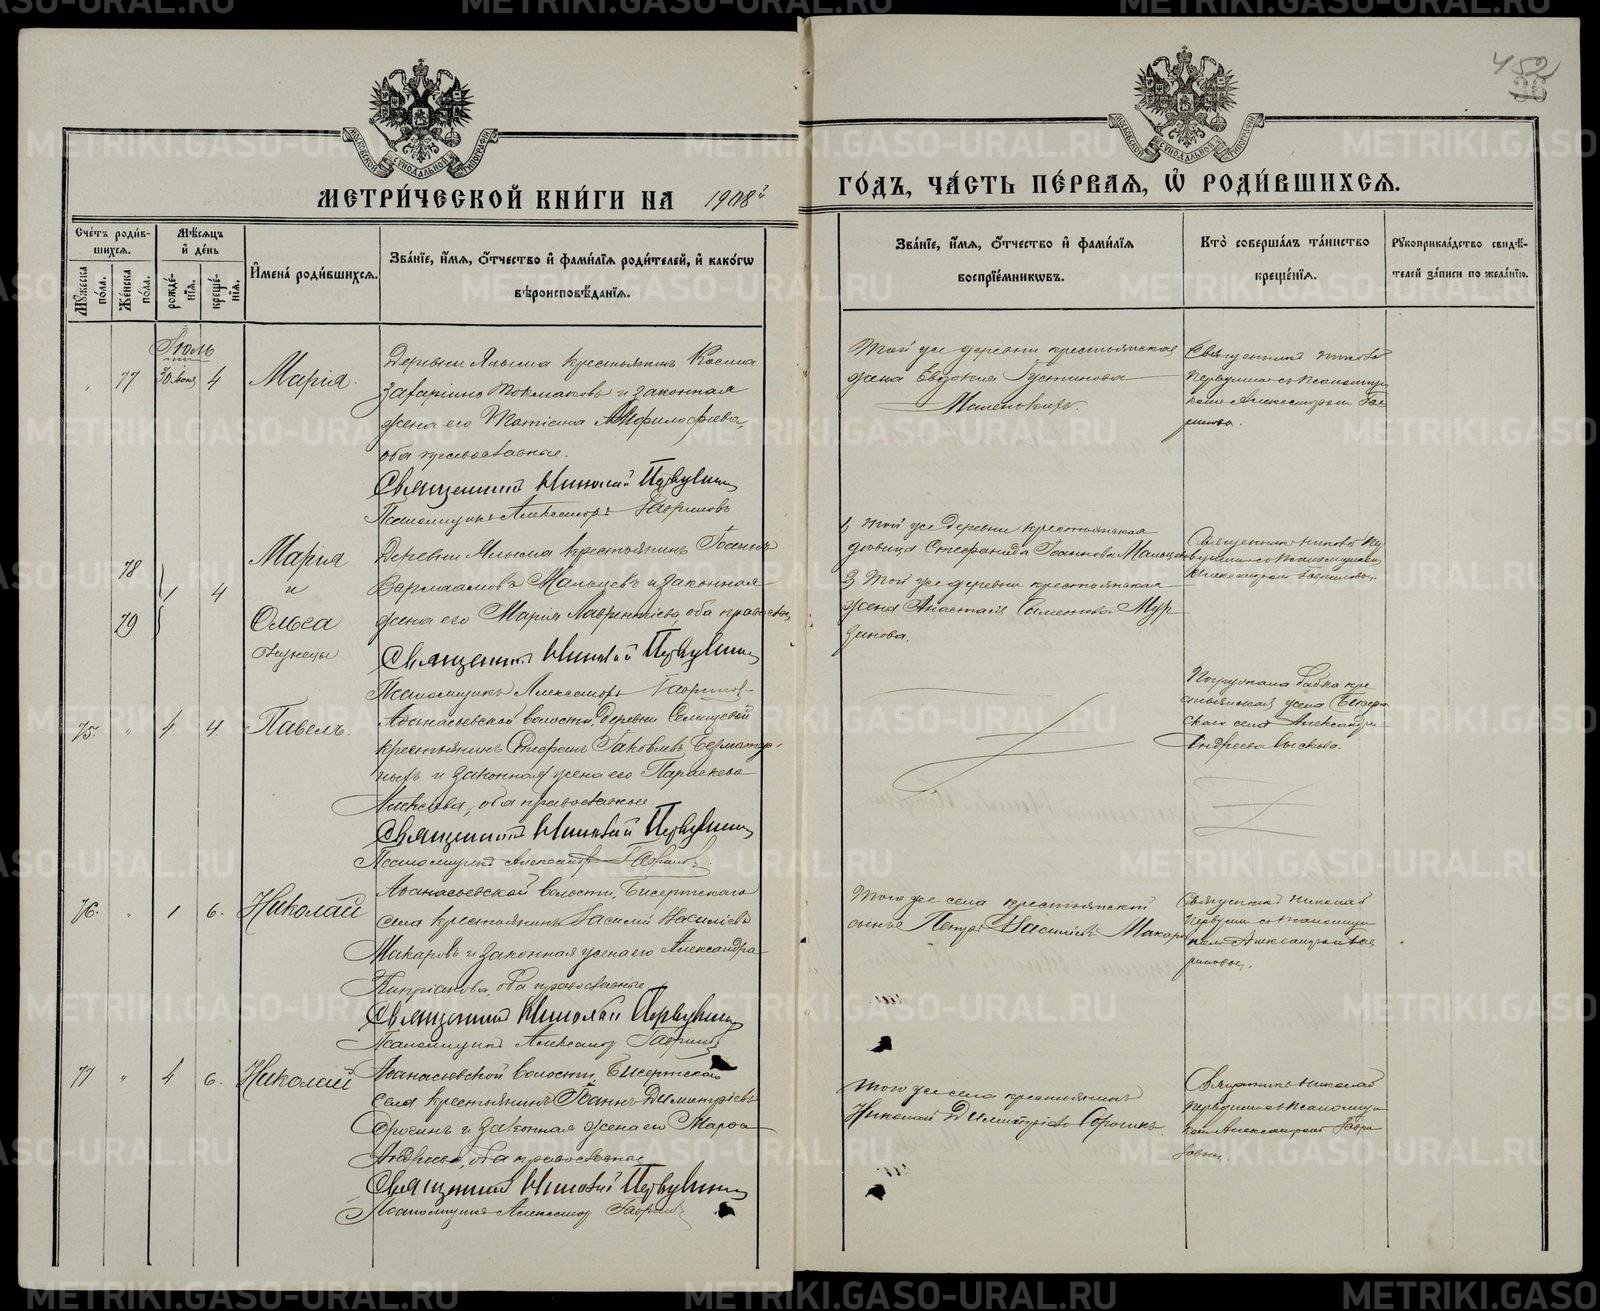 452
МЕТРИ́ЧЕСКОЙ КНИ́ГИ НА 1908й
ГО́ДЪ, ЧА́СТЬ ПЕ́РВАѦ, Ѡ҆ РОДИ́ВШИХСѦ.
Сче́тъ роди́в-
шихсѧ.
Мѣ́сѧцъ
и҆ де́нь
Мꙋ́жеска по́ла.
Же́нска по́ла.
рожде́-
нїѧ.
креще́-
нїѧ.
И҆мена̀ роди́вшихсѧ.
Зва́нїе, и҆́мѧ, ѻ҆́тчество и҆ фами́лїѧ роди́телей, и҆ како́гѡ
вѣроисповѣ́данїѧ.
Зва́нїе, и҆́мѧ, ѻ҆́тчество и҆ фами́лїѧ
воспрїе́мникѡвъ.
Кто̀ соверша́лъ та́инство
креще́нїѧ.
Рꙋкоприкла́дство свидѣ́-
телей за́писи по жела́нїю.
Іюль
77 30 Июня 4 Марія.
Деревни Крестьянинъ Косма
и законная
жена его Татіана
оба православные.
Священникъ Николай Первушинъ
Псаломщикъ Александръ Гавриловъ
Той же деревни крестьянская
жена Евдокия Устинова
Священникъ Николай
Первушинъ съ псаломщи
комъ Александромъ Гав
риловы.
78
79
1 4
Марія
и
Ольга
близнецы
Деревни Крестьянинъ Іоаннъ
Варлаамовъ Мальцевъ и законная
жена его Марія Лаврентіева, оба православн.
Священникъ Николай Первушинъ
Псаломщикъ Александръ Гавриловъ
1, Той же деревни крестьянская
вдовица Стефанида Іоаннова Мальцева
2, Той же деревни крестьянская
жена Анастасія Симонова Мур
зинова.
Священникъ Николай Пер
вушинъ съ Псаломщикомъ
Александромъ Гавриловы.
75. " 4 4 Павелъ.
Афанасьевской волости, Деревни
крестьянинъ Стефанъ Іаковлевъ
и законная жена его Параскева
Алексѣева, оба православные
Священникъ Николай Первушинъ
Псаломщикъ Александръ Гавриловъ
Погружала бабка кре
стьянская жена Бисерт
скаго села Александра
Андреева
76. " 1 6. Николай
Афанасьевской волости, Бисертскаго
села крестьянинъ Василій Василіевъ
Макаровъ и законная жена его Александра
Кипріанова, оба православные
Священникъ Николай Первушинъ
Псаломщикъ Александръ Гавриловъ
Того же села крестьянской
сынъ Петръ Василіевъ Макаровъ
Священникъ Николай
Первушинъ съ псаломщи
комъ Александромъ Гав
риловы.
77 " 4 6. Николай
Афанасьевской волости, Бисертскаго
села крестьянинъ Іоаннъ Димитріевъ
Сорогинъ и законная жена его Марѳа
Андреева, оба православные
Священникъ Николай Первушинъ
Псаломщикъ Александръ Гавриловъ
Того же села крестьянинъ
Николай Димитріевъ Сорогинъ
Священникъ Николай
Первушинъ съ псаломщи
комъ Александромъ Гаври
ловы.
METRIKI.GASO-URAL.RU